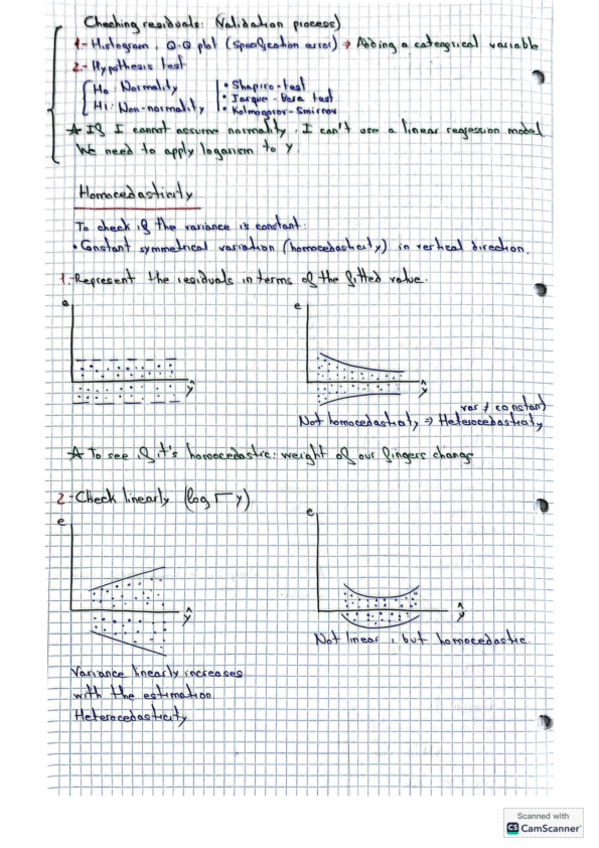 Checking residuals: (Validation process)
1.- Histogram, Q-Q plot (specification error) → Adding a categrical variable
2.- Hypothesis test
H0: Normality
H1: Non-normality
• Shapiro-test
• Jarque-Bera test
• Kolmogorov-Smirnov
★ If I cannot assume normality, I can't use a linear regression model
We need to apply logarism to y.
Homocedasticity
To check if the variance is constant:
• Constant symmetrical variation (homocedasticity) in vertical direction.
1.- Represent the residuals in terms of the fitted value.
e
ŷ
e
ŷ
var ≠ constant
Not homocedasticity → Heterocedasticity
★ To see if it's homocedastic: weight of our fingers change
2.- Check linearly (log y)
e
ŷ
e
ŷ
Not linear, but homocedastic.
Variance linearly increases
with the estimation.
Heterocedasticity
Scanned with
CS CamScanner